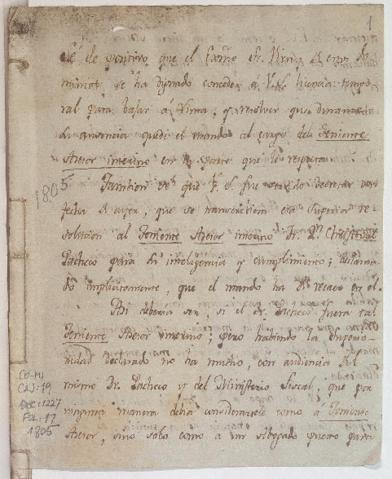 1
que el
se ha dignado conceder a V.S. licencia tempo
ral para bajar a Lima, y resolver que durante
su ausencia quede el mando al cargo del Teniente
Asesor interino en la parte que le respecta.
1805
Tambien se que V.S. fue servido decretar con
fecha de ayer, que se transcribiera esa Superior re
solucion al Teniente Asesor interino Dr. Dn.
Pacheco para su inteligencia y cumplimiento;
do implicitamente, que el mando ha de recaer en el.
Asi deberia ser, si el Dr. Pacheco fuera tal
Teniente Asesor interino; pero habiendo la Superio
ridad declarado no ha mucho, con audiencia del
mismo Dr. Pacheco y del Ministerio Fiscal, que por
ninguna manera debia considerarse como a Teniente
Asesor, sino solo como a un Abogado
CO-MI
CAJ: 19
DOC: 1227
FOL: 17
1805